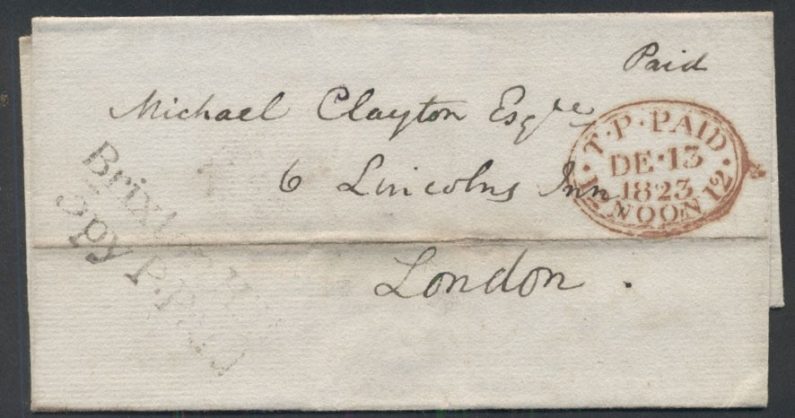 Paid
Michael Clayton Esqre
6 Lincolns Inn
London .
· T · P · PAID ·
DE · 13
1823
12 NOON 12
3py P. Paid